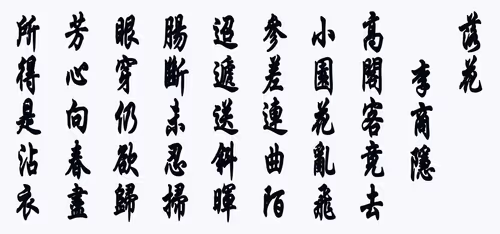 落花
李商隱
高閣客竟去
小園花亂飛
參差連曲陌
迢遞送斜暉
腸斷未忍掃
眼穿仍欲歸
芳心向春盡
所得是沾衣